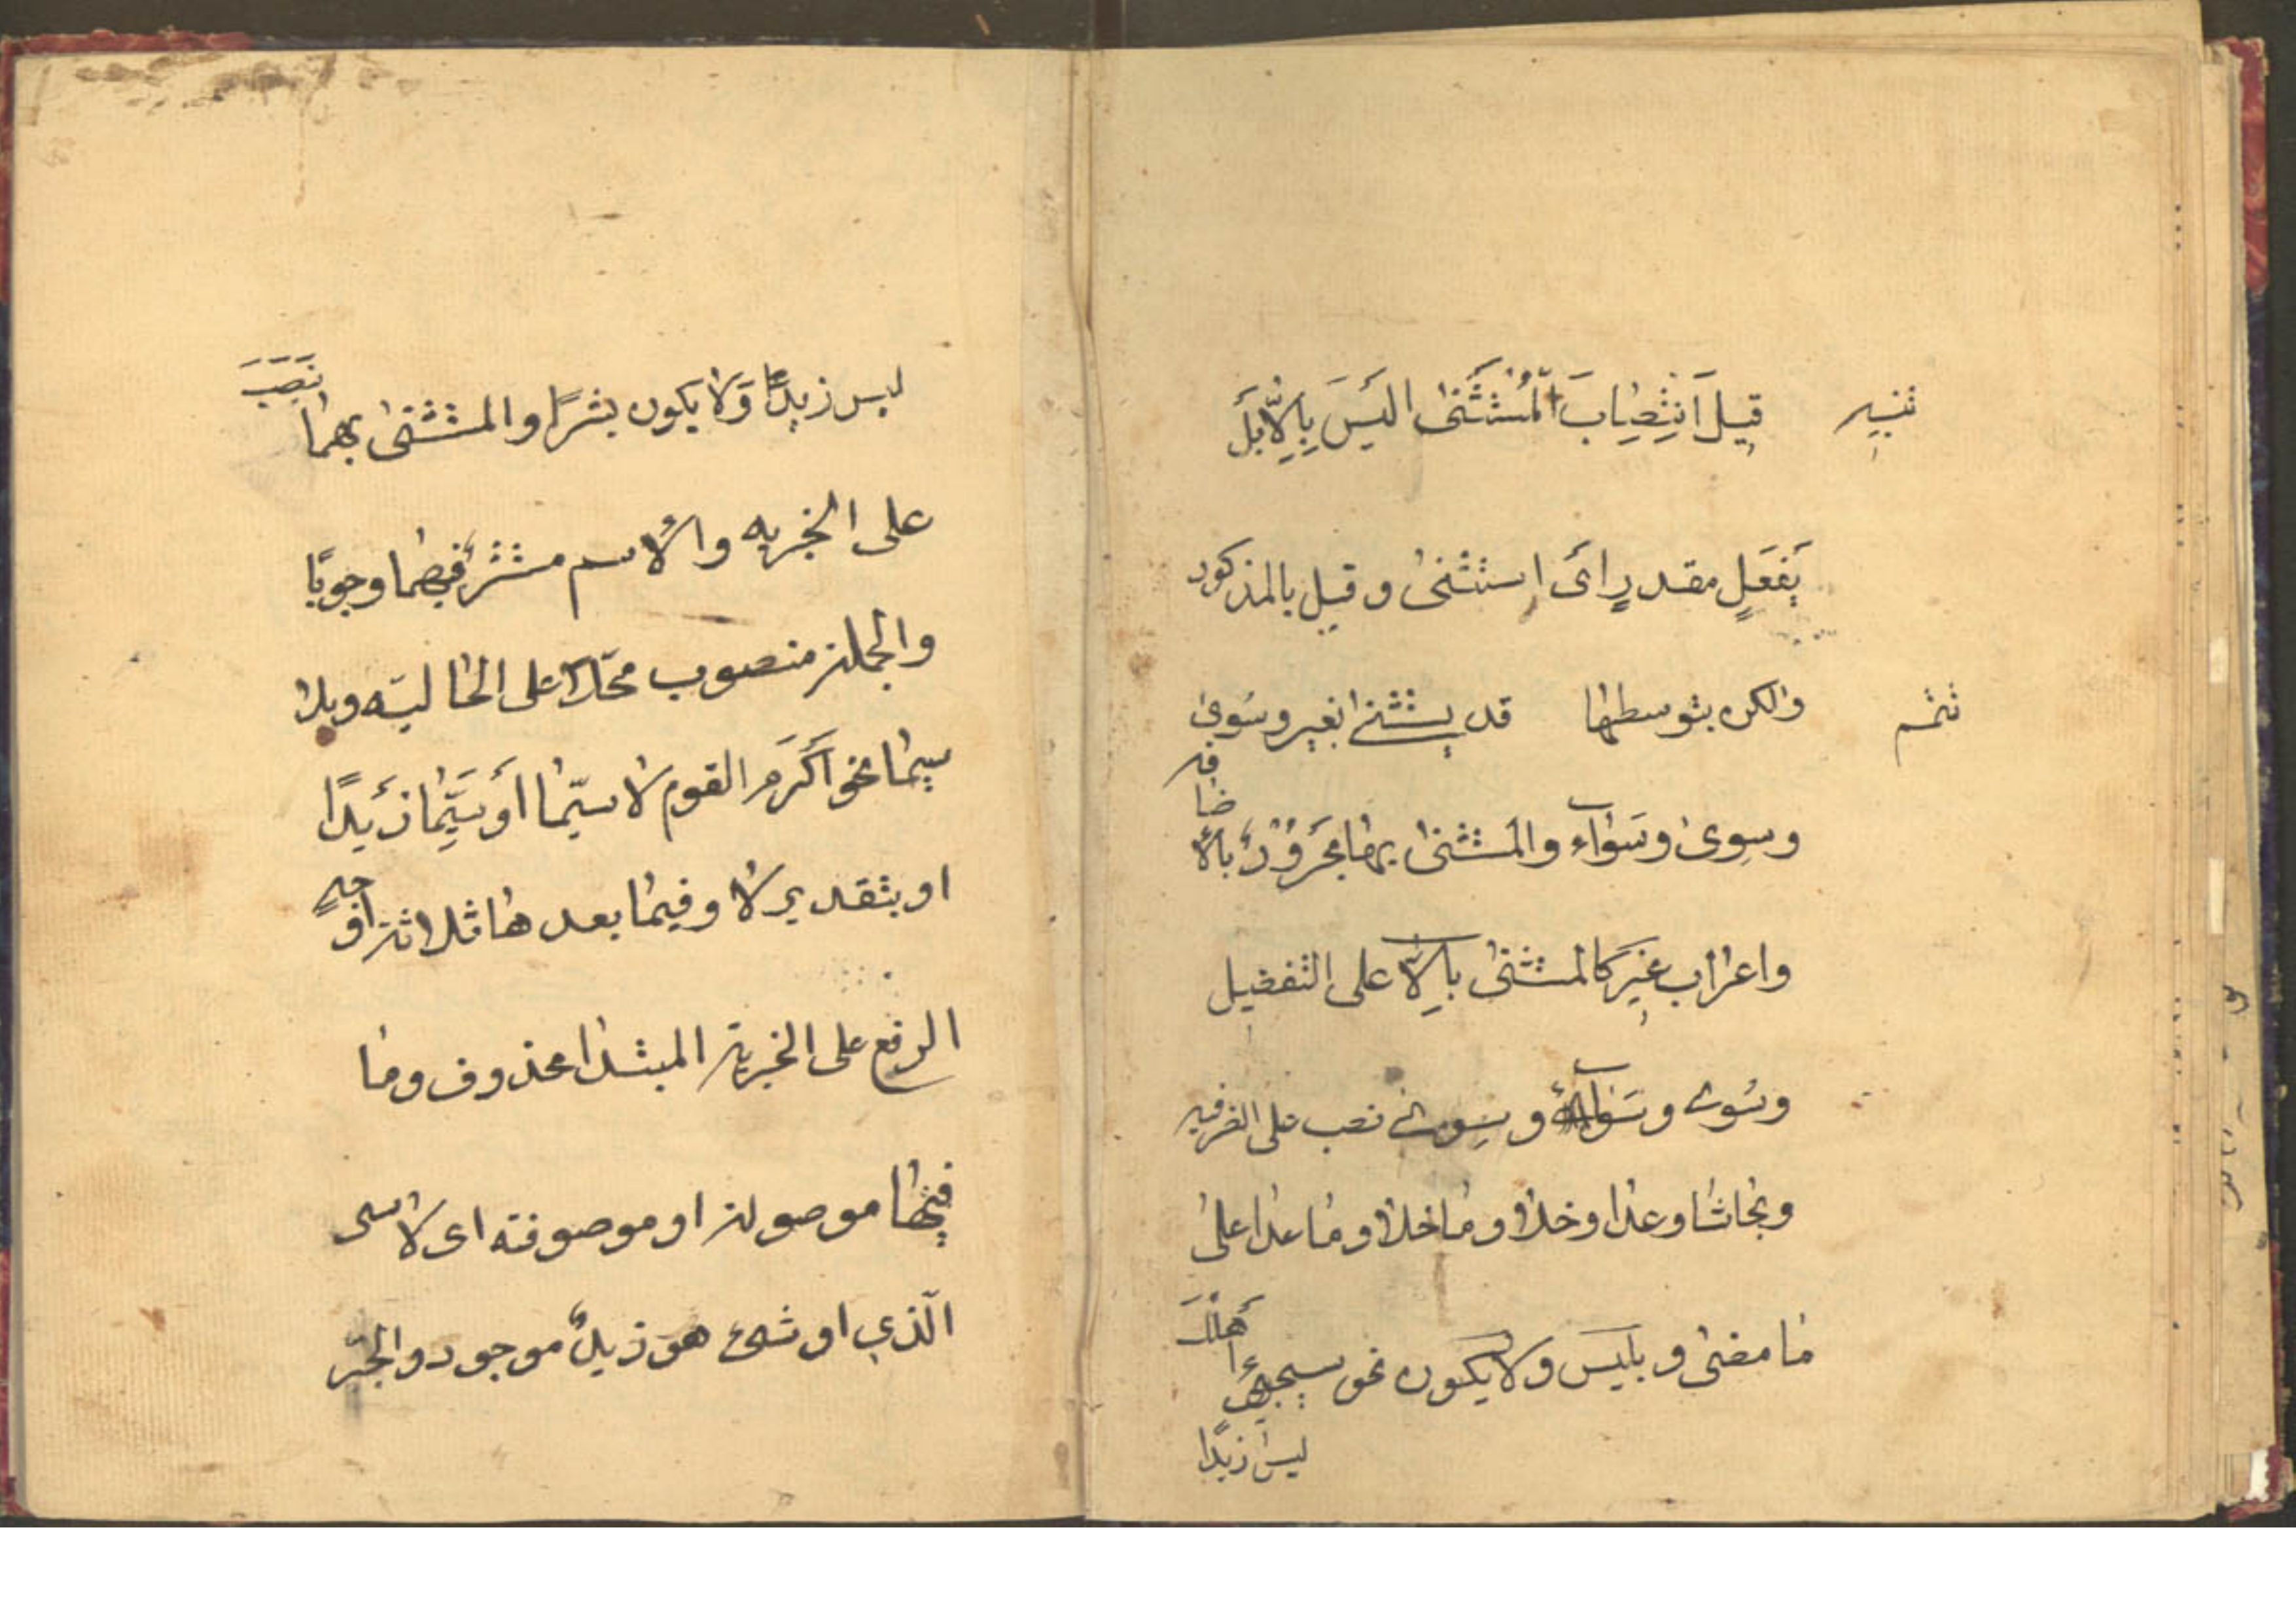 تنبيه قيل انتصاب المستثنى اليس بالا بل
بفعل مقدر اى استثنى و قيل بالمذكور
تتم والكن بتوسطها قد يستثنى بغير وسوى
وسوى وسواء والمستثنى بها مجرور بالاضافه
واعراب غير كالمستثنى بالا على التفضيل
وسوى وسواء وسوى نصب على الظرفيه
وبحاشا وعدا وخلا وما خلا وما عدا على
ما مضى و بليس ولا يكون نحو سيجيئ اهلك
ليس زيدا
ليس زيدا ولا يكون بشرا والمستثنى بهما نصب
على الخبريه والاسم مستتر فيهما وجوبا
والجملة منصوب محلا على الحاليه وبلا
سيما نحو اكرم القوم لا سيما او سيما زيدا
او بتقدير لا وفيما بعدها ثلاثة اوجه
الرفع على الخبرية المبتدا محذوف وما
فيها موصولة او موصوفته اى لا سى
الذي او شئ هو زيد موجود والجر